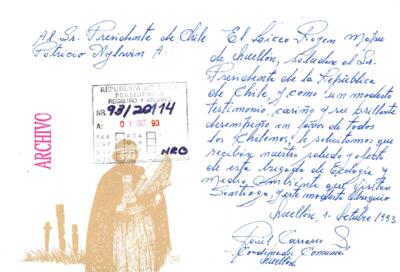 Al Sr. Presidente de Chile
Patricio Aylwin A.
ARCHIVO
REPUBLICA DE CHILE
PRESIDENCIA
REGISTRO Y ARCHIVO
NR. 93/20114
A: 01 OCT 93
P.A.A.
R.C.A.
NRG
El Liceo Rayen Mapu
de Quellón, saluda al Sr.
Presidente de la República
de Chile, y como un modesto
testimonio, cariño y su brillante
desempeño en favor de todos
los Chilenos, le solicitamos que
reciba nuestro saludo y afecto
de esta brigada de Ecología y
Medio Ambiente que visitan
Santiago, y este modesto obsequio
Quellón, 1 Octubre 1993
Carrasco S.
Coordinador Comunal
Quellón